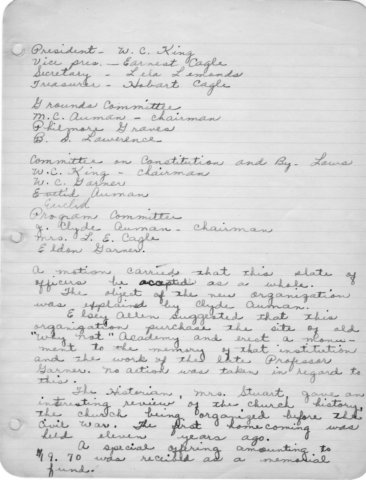 President - W. C. King
Vice pres. - Earnest Cagle
Secretary - Lela Lemonds
Treasurer - Hobart Cagle
Grounds Committee
M. C. Auman - chairman
Philmore Graves
B. D. Lawerence
Committee on Constitution and By-Laws
W. C. King - chairman
W. C. Garner
Euclid Auman
Euclid
Program Committee
J. Clyde Auman - chairman
Mrs. L. E. Cagle
Eldon Garner.
A motion carried that this slate of
officers be accepted as a whole.
The object of the new organization
was explained by Clyde Auman.
Elsey Allen suggested that this
organization purchase the site of old
"Why Not" Academy and erect a monu-
ment to the memory of that institution
and the work of the late Professor
Garner. No action was taken in regard to
this.
The Historian, Mrs. Stuart, gave an
intresting review of the church history
the church being organized before the
Civil War. The first homecoming was
held eleven years ago.
A special offering amounting to
$9.70 was received as a memorial
fund.